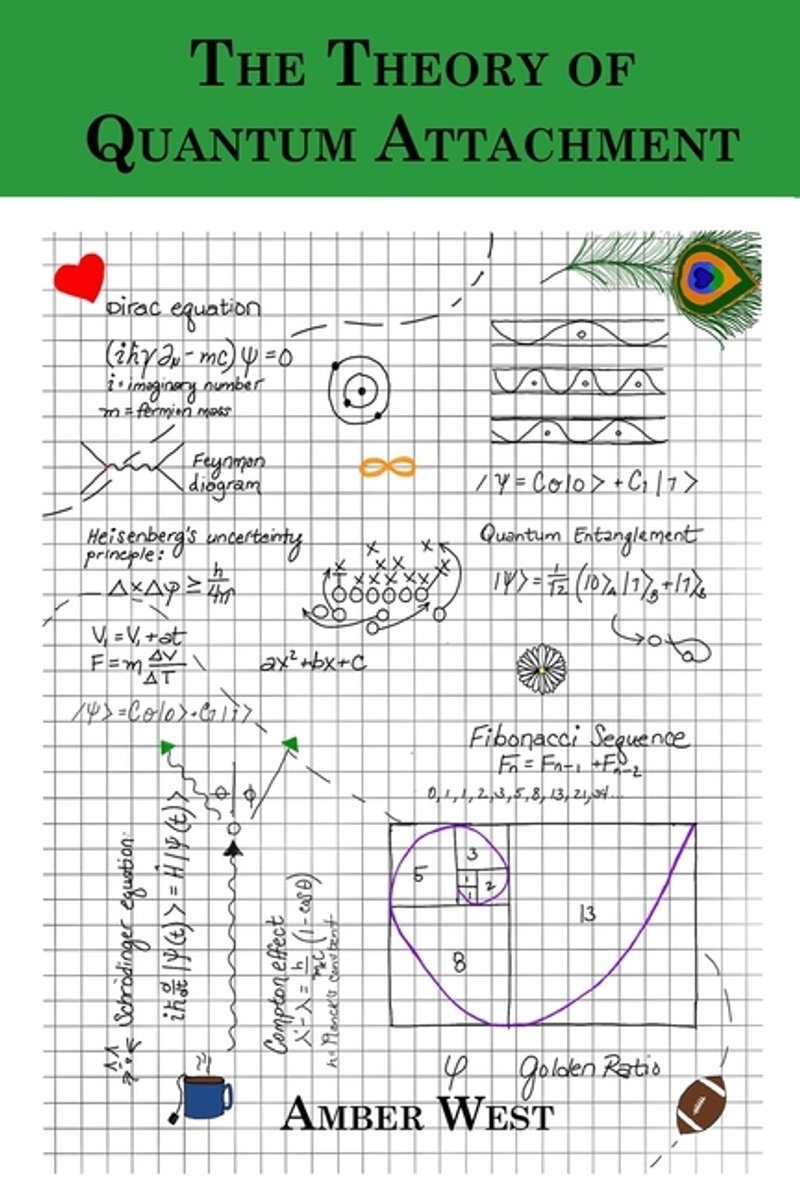 THE THEORY OF
QUANTUM ATTACHMENT
Dirac equation
(iħγ∂μ - mc)ψ = 0
i = imaginary number
m = fermion mass
Feynman
diagram
|ψ = C0|0> + C1|1>
Heisenberg's uncertainty
principle:
ΔxΔφ ≥ h/4π
Quantum Entanglement
|ψ> = 1/√2 (|0>A |1>B + |1>B
V1 = V1 + at
F = m ΔV/ΔT
ax² + bx + c
|ψ> = C0|0> + C1|1>
Fibonacci Sequence
Fn = Fn-1 + Fn-2
0, 1, 1, 2, 3, 5, 8, 13, 21, 34...
Φ φ
5
3
1
1
2
8
13
Schrödinger equation:
iħ d/dt |ψ(t)> = Ĥ|ψ(t)>
Compton effect
λ' - λ = h/mc (1 - cosθ)
h = Planck's constant
φ Golden Ratio
AMBER WEST